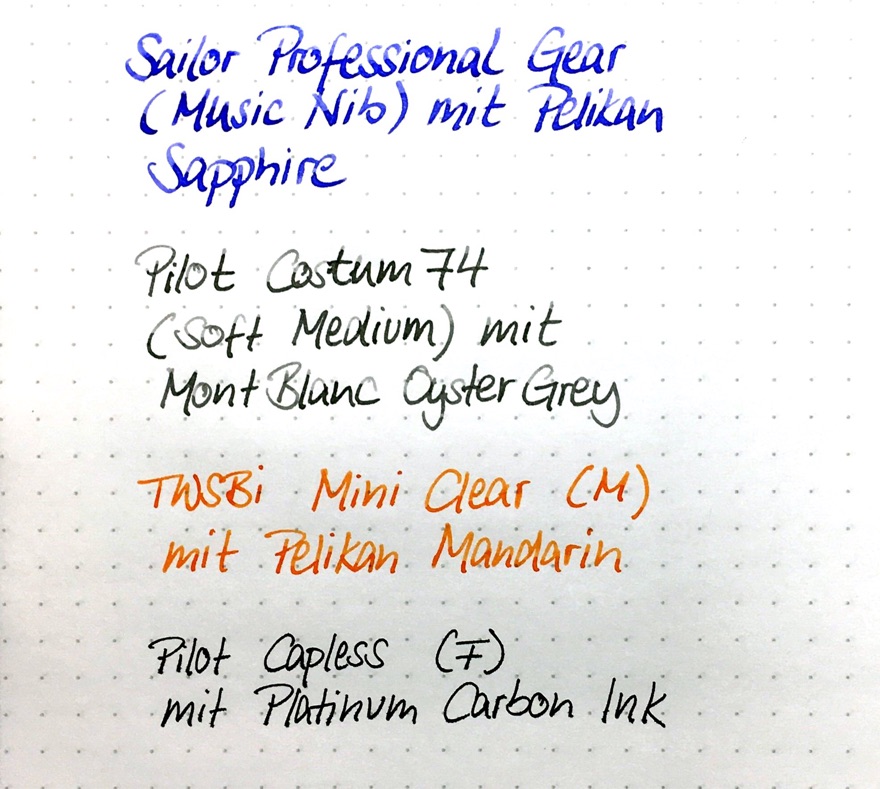 Sailor Professional Gear
(Music Nib) mit Pelikan
Sapphire
Pilot Costum 74
(Soft Medium) mit
MontBlanc Oyster Grey
TWSBi Mini Clear (M)
mit Pelikan Mandarin
Pilot Capless (F)
mit Platinum Carbon Ink